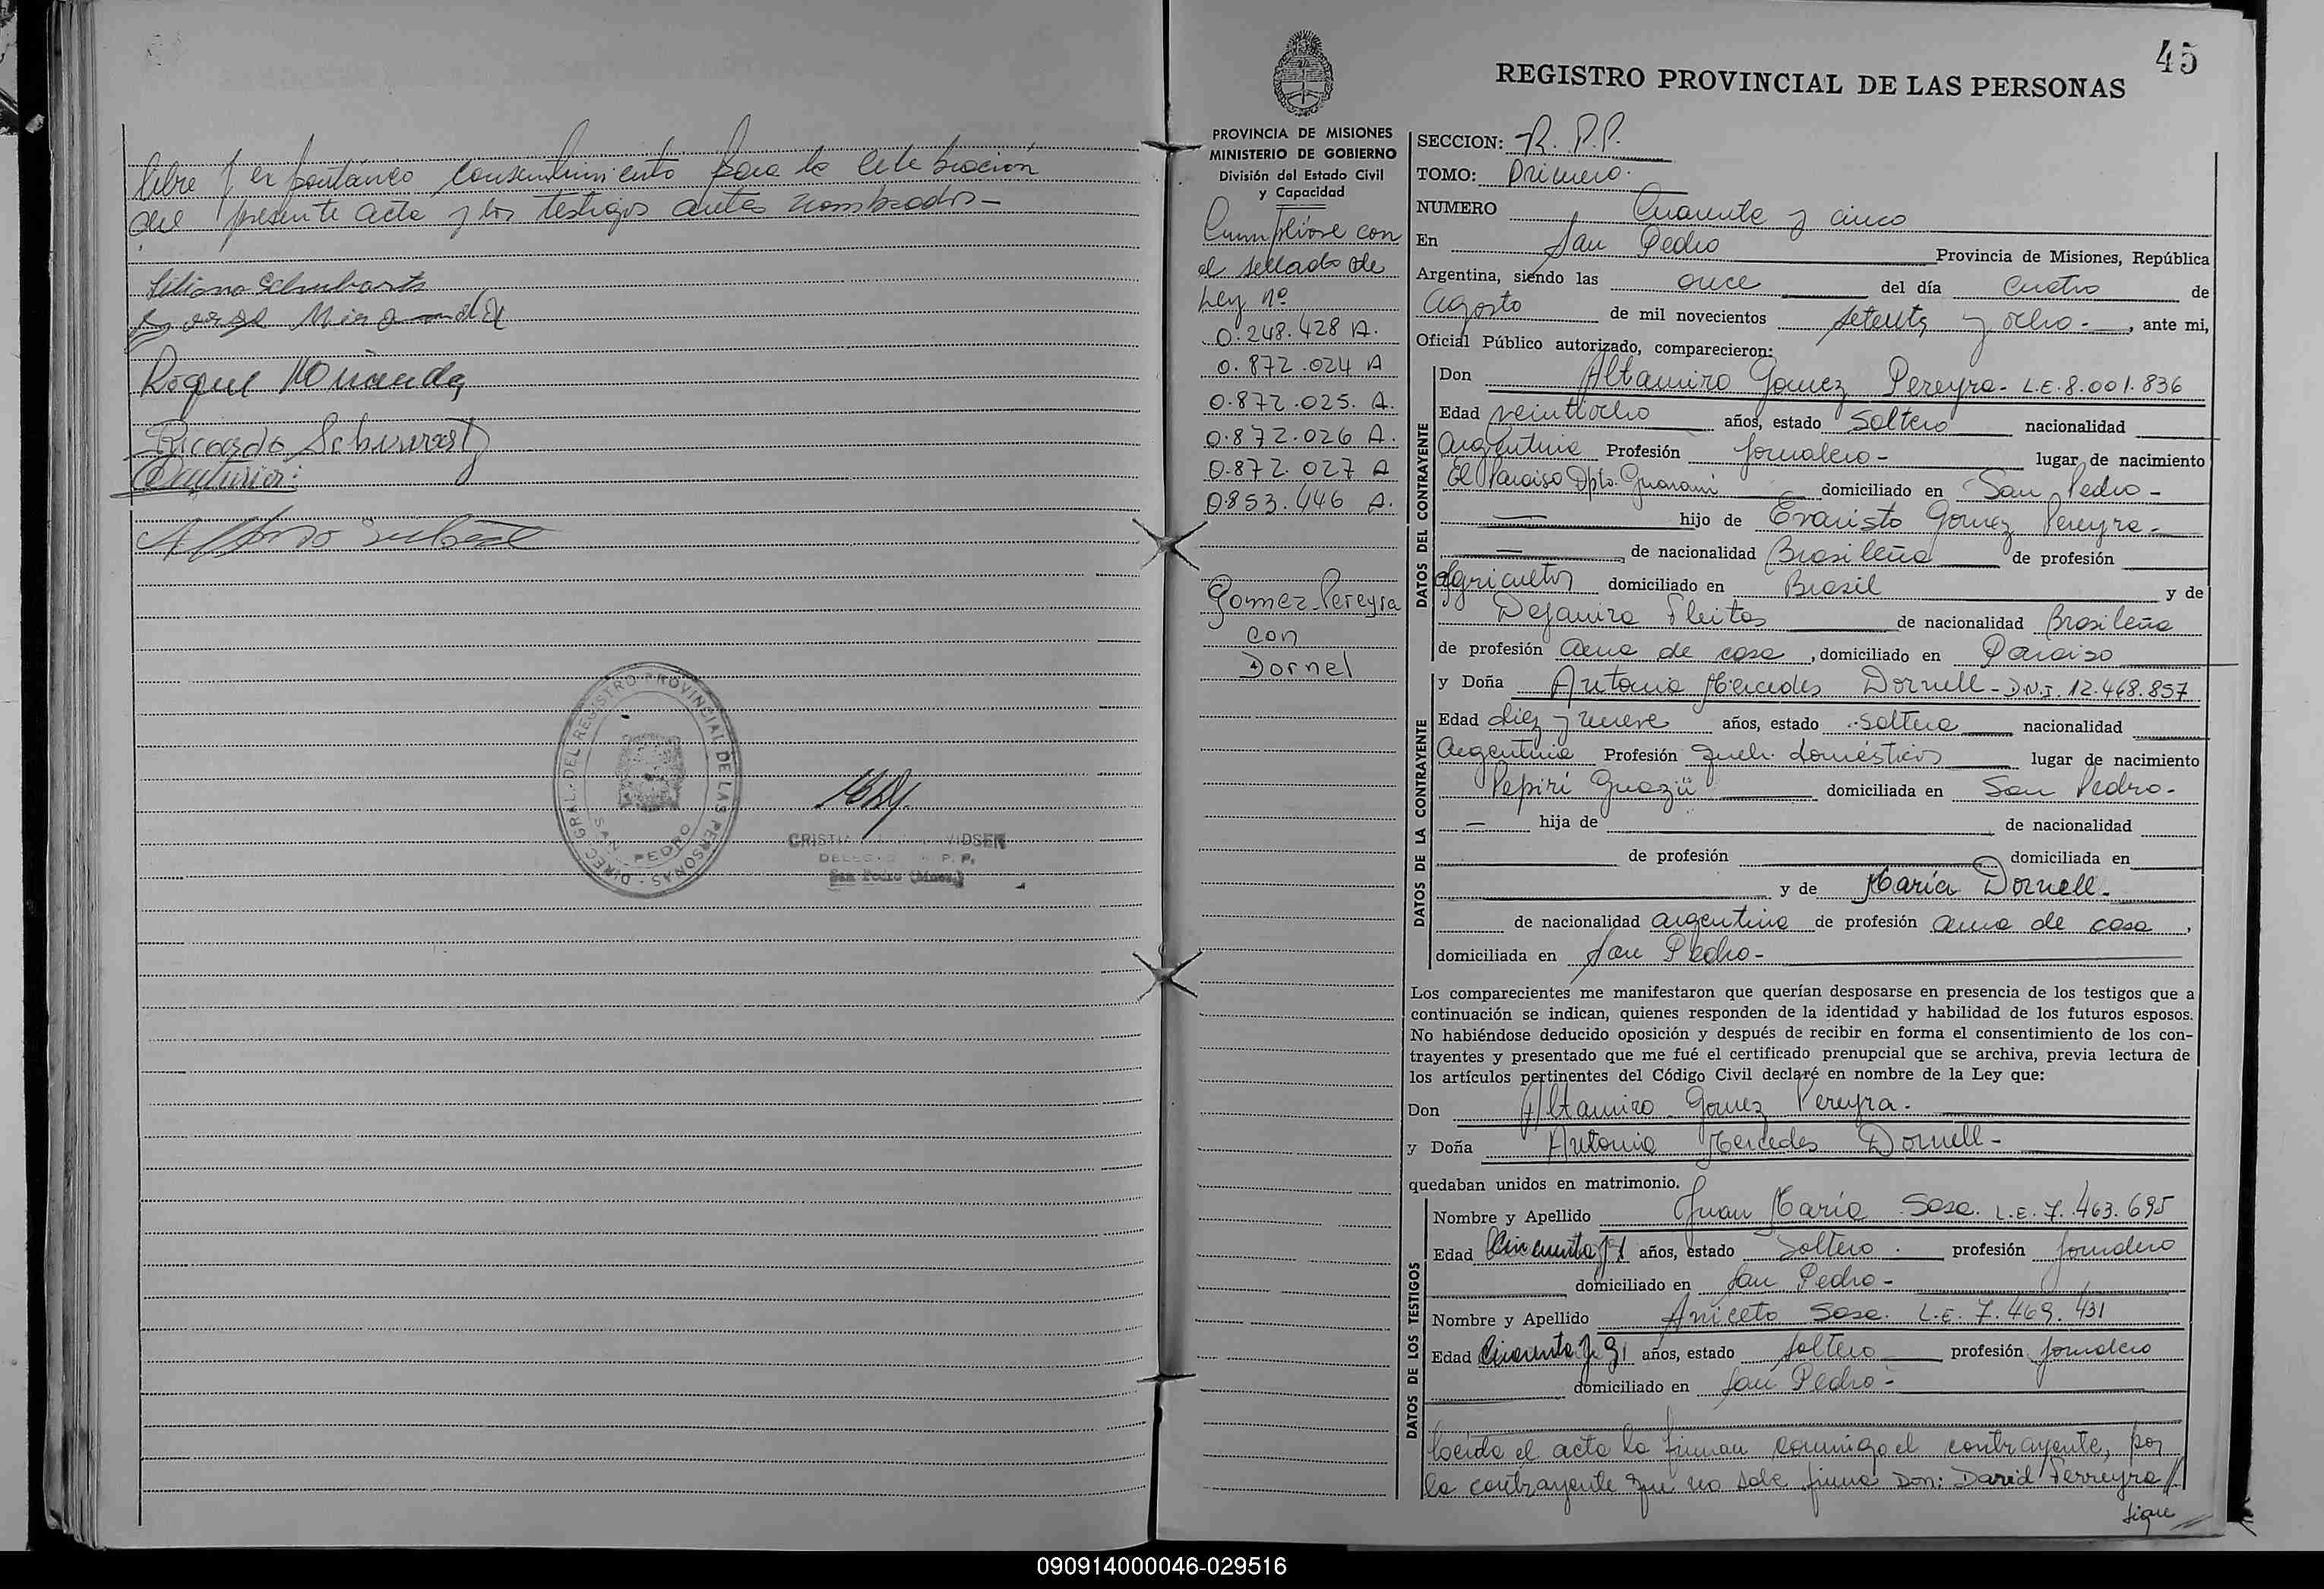 libre y expontáneo consentimiento para la celebración
del presente acta y los testigos antes nombrados—
Liliana Schubarts
Jorge Miranda
Roque Miranda
Ricardo Schuvarst
DIREC. GRAL. DEL REGISTRO PROVINCIAL DE LAS PERSONAS
SAN PEDRO
CRISTIA VIDSEN
P. P.
San Pedro (Mnes.)
45
REGISTRO PROVINCIAL DE LAS PERSONAS
PROVINCIA DE MISIONES
MINISTERIO DE GOBIERNO
División del Estado Civil
y Capacidad
Cumplióse con
el sellado de
Ley nº
0.248.428 A.
0.872.024 A
0.872.025. A.
0.872.026 A.
0.872.027 A
0853.446 A.
Gomez Pereyra
con
Dornel
SECCION: R. P.P.
TOMO: Primero.
NUMERO Cuarenta y cinco
En San Pedro Provincia de Misiones, República
Argentina, siendo las once del día cuatro de
Agosto de mil novecientos setenta y ocho-, ante mi,
Oficial Público autorizado, comparecieron:
DATOS DEL CONTRAYENTE
Don Altamiro Gomez Pereyra- L.E. 8.001.836
Edad veintiocho años, estado Soltero nacionalidad
Argentina Profesión Jornalero- lugar de nacimiento
El Paraiso Dpto. Guarani domiciliado en San Pedro-
hijo de Evaristo Gomez Pereyra-
de nacionalidad Brasileña de profesión
Agricultor domiciliado en Brasil y de
Dejanira Fleitas de nacionalidad Brasileña
de profesión ama de casa, domiciliado en Paraiso
DATOS DE LA CONTRAYENTE
y Doña Antonia Mercedes Dornell- D.N.I. 12.468.857
Edad diez y nueve años, estado soltera nacionalidad
Argentina Profesión Queh. domésticos lugar de nacimiento
Pepirí Guazú domiciliada en San Pedro-
hija de de nacionalidad
de profesión domiciliada en
y de María Dornell-
de nacionalidad argentina de profesión ama de casa,
domiciliada en San Pedro-
Los comparecientes me manifestaron que querían desposarse en presencia de los testigos que a
continuación se indican, quienes responden de la identidad y habilidad de los futuros esposos.
No habiéndose deducido oposición y después de recibir en forma el consentimiento de los con-
trayentes y presentado que me fué el certificado prenupcial que se archiva, previa lectura de
los artículos pertinentes del Código Civil declaré en nombre de la Ley que:
Don Altamiro Gomez Pereyra.
y Doña Antonia Mercedes Dornell-
quedaban unidos en matrimonio.
DATOS DE LOS TESTIGOS
Nombre y Apellido Juan María Sosa. L.E. 7.463.695
Edad Cincuenta y 1 años, estado Soltero. profesión jornalero
domiciliado en San Pedro-
Nombre y Apellido Aniceto Sosa. L.E. 7.469.431
Edad años, estado soltero profesión jornalero
domiciliado en San Pedro-
Leida el acta la firman conmigo el contrayente, por
la contrayente que no sabe firma Don: David Ferreyra//
sigue
090914000046-029516